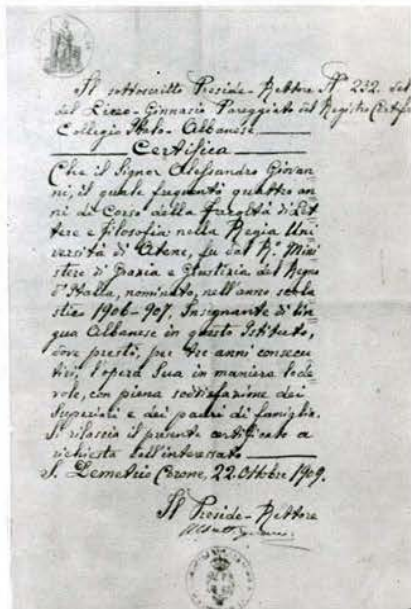 Il sottoscritto Preside-Rettore N° 232. del
del Liceo-Ginnasio Pareggiato del Registro Certifi
Collegio Italo-Albanese
Certifica
Che il Signor Alessandro Giovan=
ni, il quale frequentò quattro an=
ni di Corso della Facoltà di Let=
tere e Filosofia nella Regia Uni=
versità di Atene, fu dal R.° Mini=
stero di Grazia e Giustizia del Regno
d'Italia, nominato, nell'anno scola=
stico 1906-907, Insegnante di lin=
gua Albanese in questo Istituto,
dove prestò, per tre anni consecu=
tivi, l'opera Sua in maniera lode=
vole, con piena soddisfazione dei
Superiori e dei padri di famiglia.
Si rilascia il presente certificato a
richiesta dell'interessato
S. Demetrio Corone, 22. Ottobre 1909.
Il Preside-Rettore